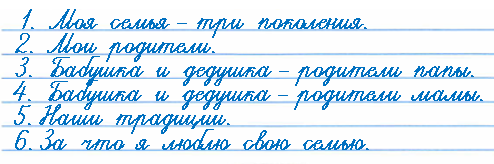 1. Моя семья – три поколения.
2. Мои родители.
3. Бабушка и дедушка – родители папы.
4. Бабушка и дедушка – родители мамы.
5. Наши традиции.
6. За что я люблю свою семью.